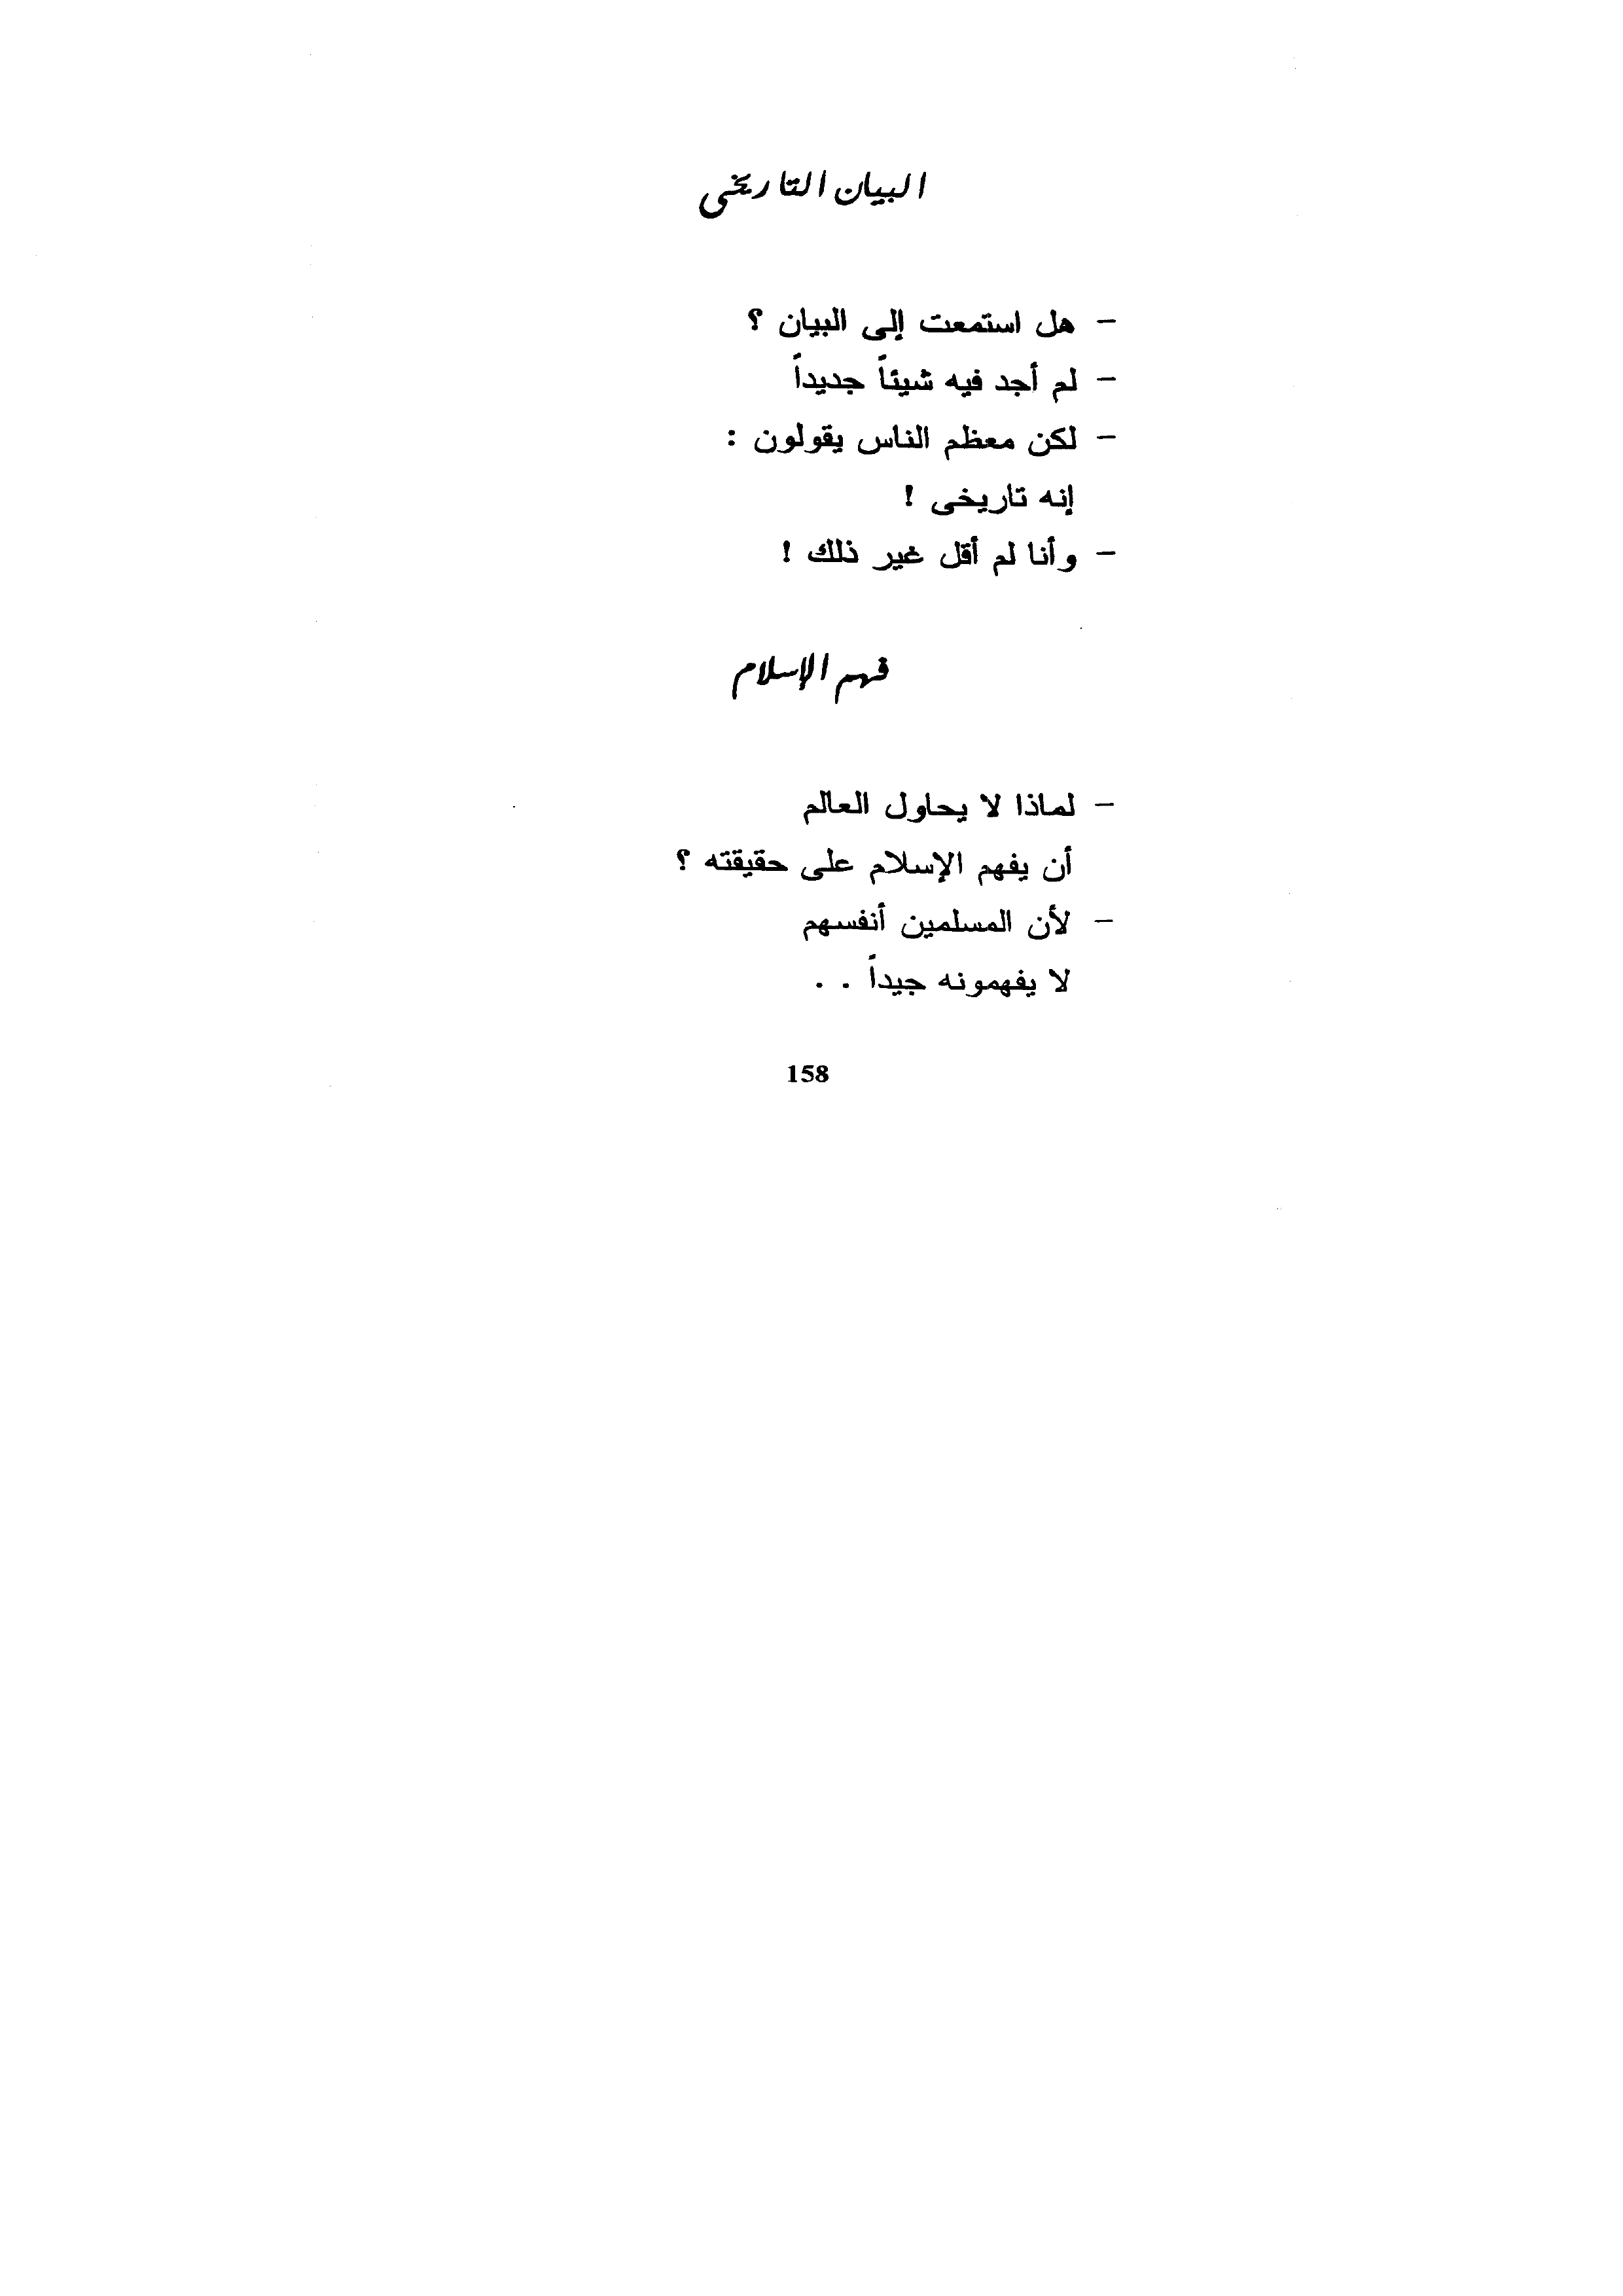 البيان التاريخى
– هل استمعت إلى البيان ؟
– لم أجد فيه شيئاً جديداً
– لكن معظم الناس يقولون :
إنه تاريخى !
– وأنا لم أقل غير ذلك !
فهم الإسلام
– لماذا لا يحاول العالم
أن يفهم الإسلام على حقيقته ؟
– لأن المسلمين أنفسهم
لا يفهمونه جيداً . .
158